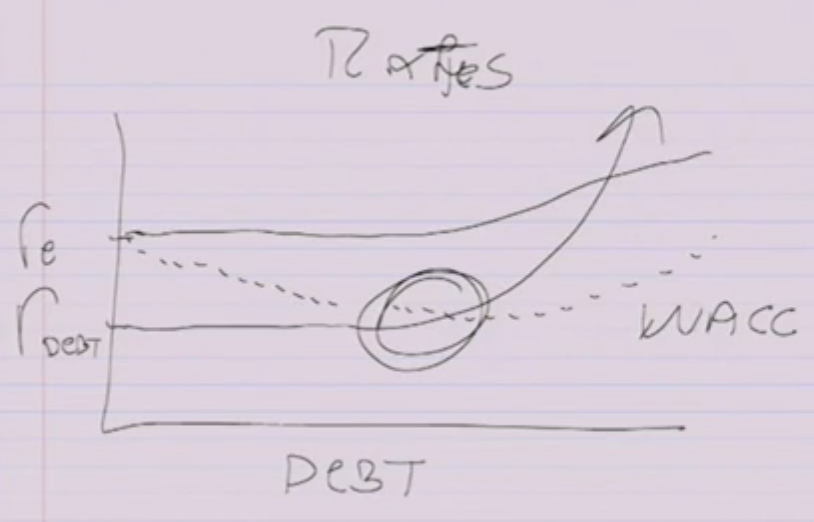 Rates
re
rDEBT
WACC
DEBT